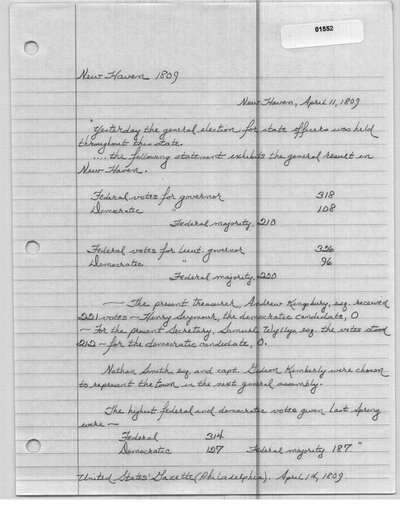 01552
New Haven 1809
New Haven, April 11, 1809
"Yesterday the general election for state officers was held
throughout this state.
.... the following statement exhibits the general result in
New Haven.
Federal votes for governor 318
Democratic " 108
Federal majority, 210
Federal votes for Lieut. governor 326
Democratic " 96
Federal majority, 220
— The present treasurer, Andrew Kingsbury, esq. received
221 votes — Henry Seymour, the democratic candidate, 0
— For the present Secretary, Samuel Wyllys, esq. the votes stood
212 — for the democratic candidate, 0.
Nathan Smith, esq. and capt. Gideon Kimberly were chosen
to represent the town in the next general assembly.
The highest federal and democratic votes given last spring
were —
Federal 314
Democratic 127 Federal majority 187."
United States' Gazette (Philadelphia), April 14, 1809